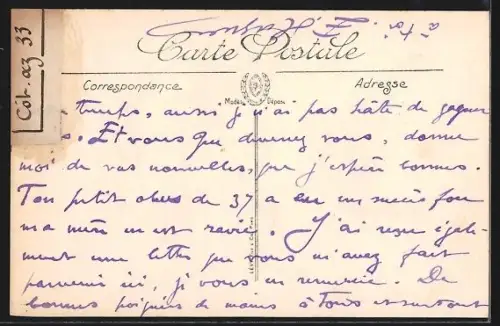 Carte Postale
Côt. az 33
Correspondance
Adresse
Modèle Déposé
temps, aussi je n'ai pas hâte de gagner
. Et vous que devenez vous, donne
moi de vos nouvelles, que j'espère bonnes.
Ton petit obus de 37 a eu un succès fou
ma mère en est ravie. J'ai reçu égale-
ment une lettre que vous m'avez fait
parvenir ici, je vous en remercie. De
bonnes poignées de mains à tous et surtout